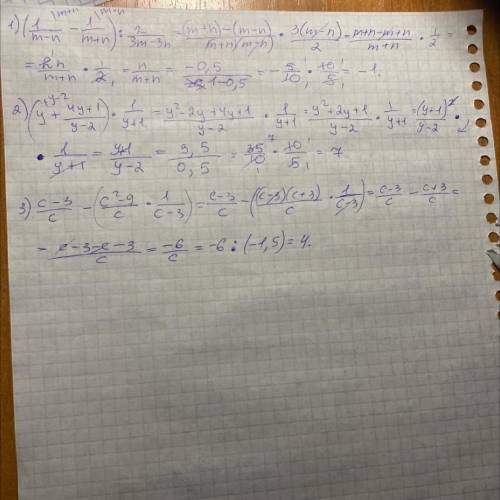 |m+n |m-n
1) (1/(m-n) - 1/(m+n)) : 2/(3m-3n) = ((m+n)-(m-n))/((m+n)(m-n)) · 3(m-n)/2 = (m+n-m+n)/(m+n) · 1/2 =
= 2n/(m+n) · 1/2 = n/(m+n) = -0,5/(1-0,5) = -5/10 · 10/5 = -1.
2) (y + (4y+1)/(y-2)) · 1/(y+1) = (y²-2y+4y+1)/(y-2) · 1/(y+1) = (y²+2y+1)/(y-2) · 1/(y+1) = (y+1)²/(y-2) ·
· 1/(y+1) = (y+1)/(y-2) = 3,5/0,5 = 35/10 · 10/5 = 7
3) (c-3)/c - ((c²-9)/c · 1/(c-3)) = (c-3)/c - ((c-3)(c+3)/c · 1/(c-3)) = (c-3)/c - (c+3)/c =
= (c-3-c-3)/c = -6/c = -6 : (-1,5) = 4.